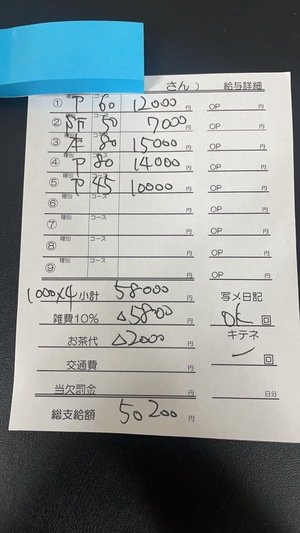 さん） 給与詳細
① P 60 12000円 OP 円
種別 コース
② 50 7000円 OP 円
種別 コース
③ 本 80 15000円 OP 円
種別 コース
④ P 80 14000円 OP 円
種別 コース
⑤ P 45 10000円 OP 円
種別 コース
⑥ 円 OP 円
種別 コース
⑦ 円 OP 円
種別 コース
⑧ 円 OP 円
種別 コース
⑨ 円 OP 円
1000×4 小計 58000円 写メ日記
雑費10% △5800円 OK 回
お茶代 △2000円 キテネ
交通費 円 ー 回
当欠罰金 円 日分
総支給額 50200円